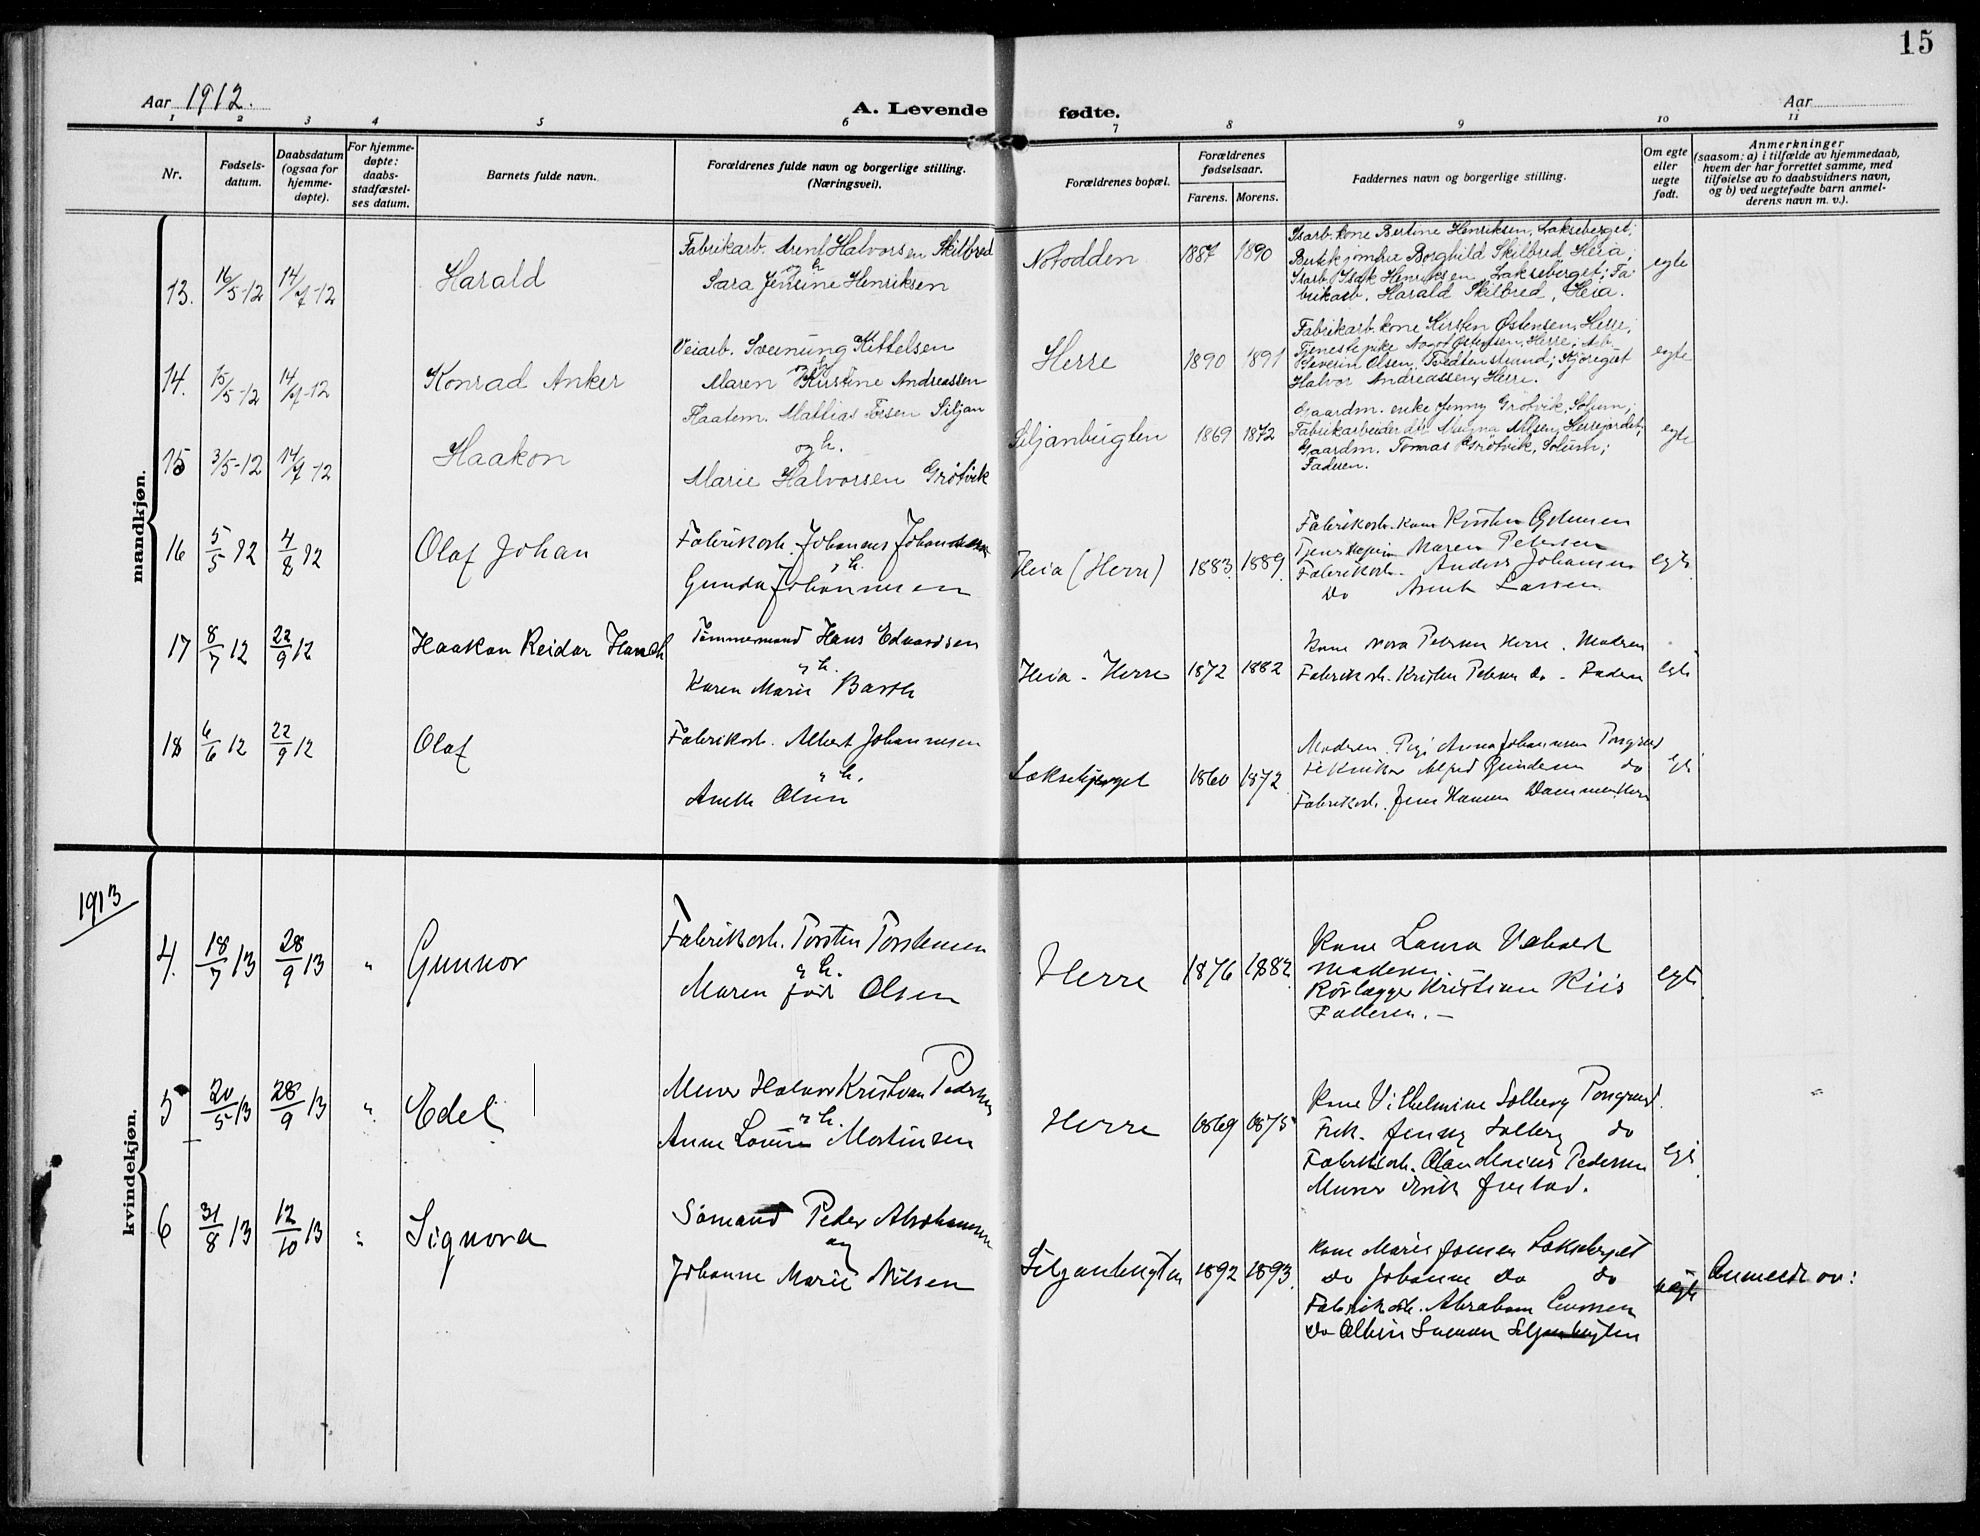 15
Aar 1912.
A. Levende fødte.
Aar
1 2 3 4 5 6 7 8 9 10 11
Nr.
Fødsels-
datum.
Daabsdatum
(ogsaa for
hjemme-
døpte).
For hjemme-
døpte:
daabs-
stadfæstel-
ses datum.
Barnets fulde navn.
Forældrenes fulde navn og borgerlige stilling.
(Næringsvei).
Forældrenes bopæl.
Forældrenes
fødselsaar.
Farens. Morens.
Faddernes navn og borgerlige stilling.
Om egte
eller
uegte
født.
Anmerkninger
(saasom: a) i tilfælde av hjemmedaab,
hvem der har forrettet samme, med
tilføielse av to daabsvidners navn,
og b) ved uegtefødte barn anmel-
derens navn m. v.).
mandkjøn.
13. 16/5-12 14/7-12 Harald
Fabrikarb. Arent Halvorsen Skilbred
og h
Sara Jensine Henriksen
Notodden 1887 1890
Isarb. kone Bertine Henriksen, Lakseberget;
Butikjomfru Borghild Skilbred, Heia;
Isarb. Isak Henriksen, Lakseberget; Fa-
brikarb. Harald Skilbred, Heia.
egte
14. 15/5-12 14/7-12 Konrad Anker
Veiarb. Sveinung Kittelsen
og h
Maren Kirstine Andreassen
Herre 1890 1891
Fabrikarb. kone Kirsten Østensen, Herre;
Tjenestepike Østensen, Herre; Arb.
Severin Olsen, Tvedtenstrand; Kjøregut
Halvor Andreassen, Herre.
egte
15 3/5-12 14/7-12 Haakon
Flaatem. Mattias Torsen Siljan
og h.
Marie Halvorsen Grøtvik
Siljanbugten 1869 1872
Gaardm. enke Jenny Grøtvik, Solum;
Fabrikarbeider dtr. Magna Nilsen, Herrejordet;
Gaardm. Tomas Grøtvik, Solum;
Faderen.
egte
16 5/5 12 4/8 12 Olaf Johan
Fabrikarb. Johannes Johannesen
og h.
Gunda Johannesen
Heia (Herre) 1883. 1889.
Fabrikarb. kone Kirsten Østensen
Maren Petersen
Fabrikarb. Anders Johansen
Do Arent Larsen
egte
17 8/7 12 22/9 12 Haakon Reidar
Tømmermand Hans Edvardsen
og h.
Karen Marie Barth
Heia - Herre 1872 1882
Kone Nora Petersen Herre. Moderen
Fabrikarb. Kristen Petersen Do - Faderen
egte
18 6/6 12 22/9 12 Olaf
Fabrikarb. Albert Johannesen
og h.
Anette Olsen
Lakseberget 1860 1872
Moderen. Pige Anna Johannesen Porsgrund
Alfred do
Fabrikarb. Jens Hansen
egte
1913
kvindekjøn.
4. 18/7 13 28/9 13 " Gunnor
Fabrikarb. Torsten Torstensen
og h.
Maren født Olsen
Herre 1876 1882.
Kone Laura
Moderen
Rørlægger Kristian Riis
Faderen. -
egte
5 20/5 13 28/9 13 " Edel
Murer Halvor Kristian Pedersen
og h.
Anne Lovise Mortinsen
Herre 1869 1875
Kone Vilhelmine Solberg Porsgrund.
Frk. Jenny Solberg do
Fabrikarb. Olav Marius Pedersen
Murer
egte
6 31/8 13 12/10 13 " Signora
Sømand Peder Abrahamsen
og
Johanne Marie Nilsen
Siljanbugten 1892 1893.
Kone Marie Jonsen Lakseberget
Do Johanne Do do
Fabrikarb. Abraham
Do Siljanbugten
uegte
Anmeldt av: